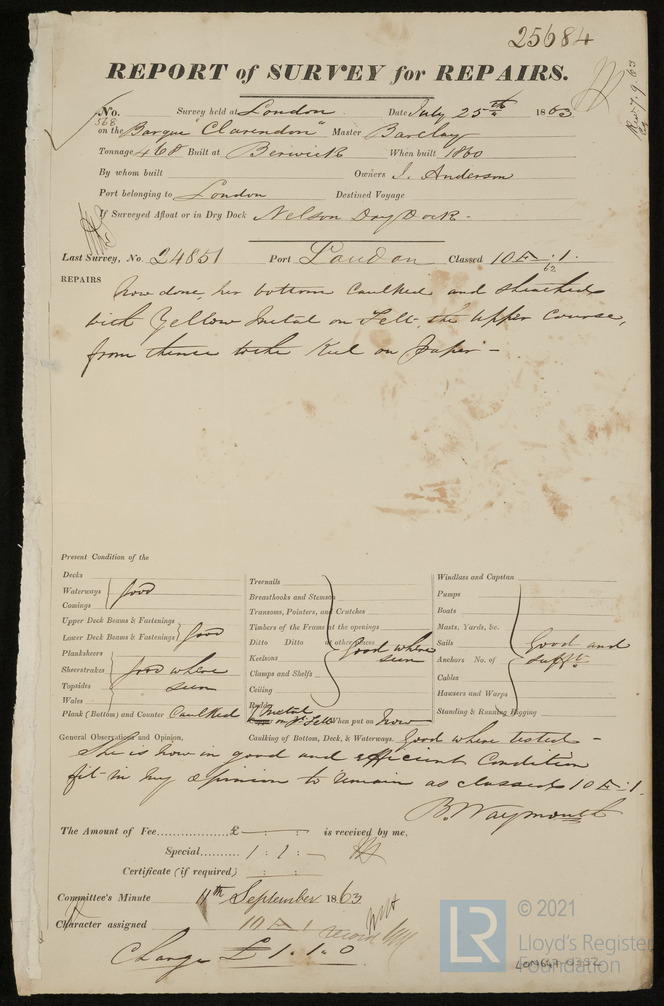 25684
REPORT of SURVEY for REPAIRS.
No. 568 Survey held at London Date July 25th 1863
on the Barque "Clarendon" Master Barclay
Tonnage 468 Built at Berwick When built 1860
By whom built Owners J. Anderson
Port belonging to London Destined Voyage
If Surveyed Afloat or in Dry Dock Nelson Dry Dock -
Last Survey, No. 24851 Port London Classed 10 A . 1.
62
REPAIRS
Now done, her bottom Caulked and sheathed
with Yellow Metal on Felt the upper Course,
from thence to the Keel on paper -
Present Condition of the
Decks
Waterways good
Comings
Upper Deck Beams & Fastenings
Lower Deck Beams & Fastenings good
Planksheers
Sheerstrakes good where
Topsides seen
Wales
Plank (Bottom) and Counter Caulked
Treenails
Breasthooks and Stemson
Transoms, Pointers, and Crutches
Timbers of the Frame at the openings
Ditto Ditto at other places good where
Keelsons seen
Clamps and Shelfs
Ceiling
Rudder
Metal on Felt When put on Now
Windlass and Capstan
Pumps
Boats
Masts, Yards, &c.
Sails Good and
Anchors No. of sufft.
Cables
Hawsers and Warps
Standing & Running Rigging
General Observations and Opinion, Caulking of Bottom, Deck, & Waterways. Good where tested -
She is now in good and efficient Condition
fit in my opinion to remain as classed 10 A . 1
B. Waymouth
The Amount of Fee............... £ is received by me,
Special.......... 1 : 1 : -
Certificate (if required)
Committee's Minute 11th September 1863
Character assigned 10 A 1
Charge £ 1.1.0
© 2021
LR
Lloyd's Register
Foundation
LON647-0392